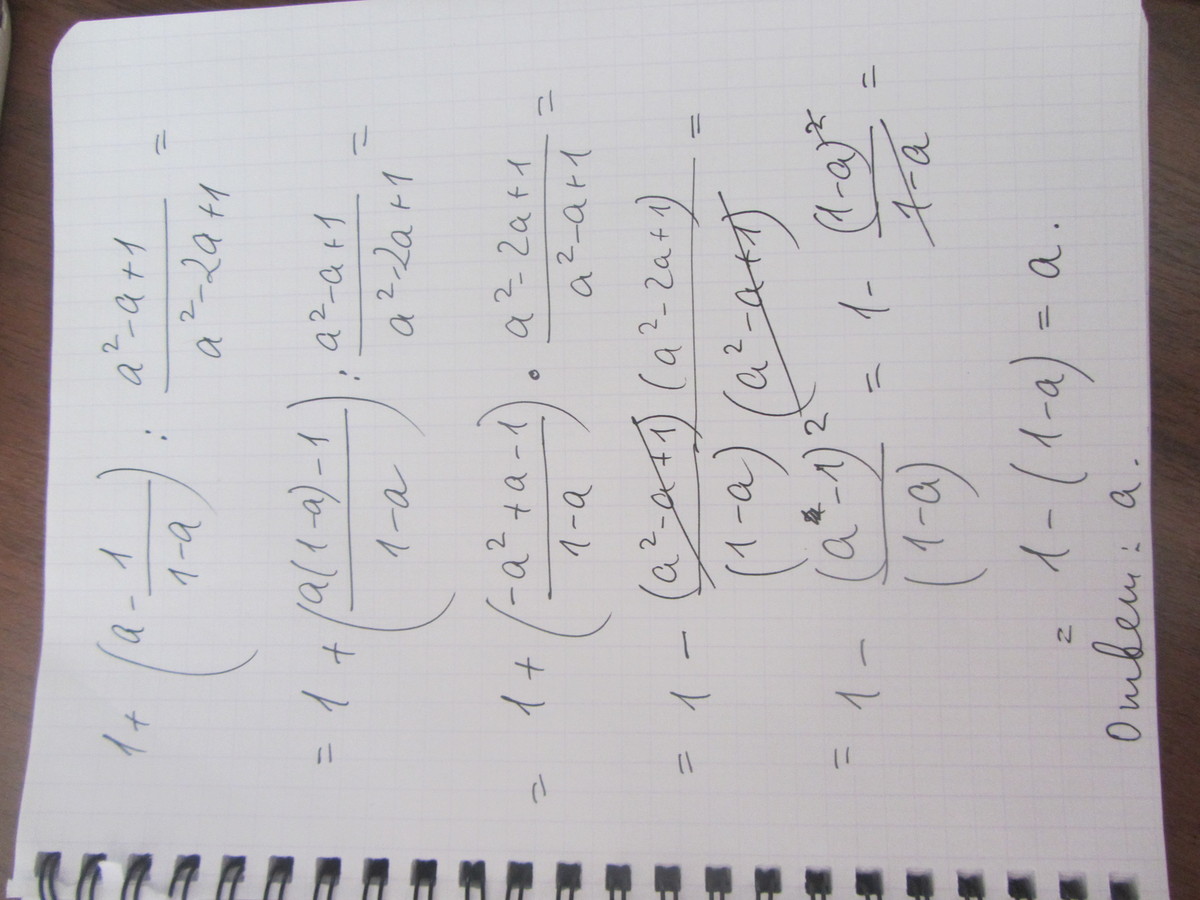 1 + (a - 1/(1-a)) : (a² - a + 1)/(a² - 2a + 1) =
= 1 + ((a(1-a) - 1)/(1-a)) : (a² - a + 1)/(a² - 2a + 1) =
= 1 + ((-a² + a - 1)/(1-a)) · (a² - 2a + 1)/(a² - a + 1) =
= 1 - ((a² - a + 1)(a² - 2a + 1))/((1-a)(a² - a + 1)) =
= 1 - (a - 1)²/(1-a) = 1 - (1-a)²/(1-a) =
= 1 - (1-a) = a.
Ответ: a.